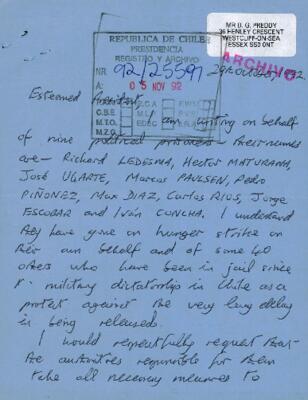 MR D. G. PREDDY
36 HENLEY CRESCENT
WESTCLIFF-ON-SEA
ESSEX SS0 0NT
ARCHIVO
REPUBLICA DE CHILE
PRESIDENCIA
REGISTRO Y ARCHIVO
NR. 92/25597
A: 05 NOV 92
29 October, 1992
Esteemed President,
I am writing on behalf
of nine political prisoners. Their names
are – Richard LEDESMA, Hector MATURANA,
José UGARTE, Marcos PAULSEN, Pedro
PIÑONEZ, Max DIAZ, Carlos RIOS, Jorge
ESCOBAR and Iván CONCHA. I understand
they have gone on hunger strike on
their own behalf and of some 40
others who have been in jail since
the military dictatorship in Chile as a
protest against the very long delay
in being released.
I would respectfully request that
the authorities responsible for them
take all necessary measures to